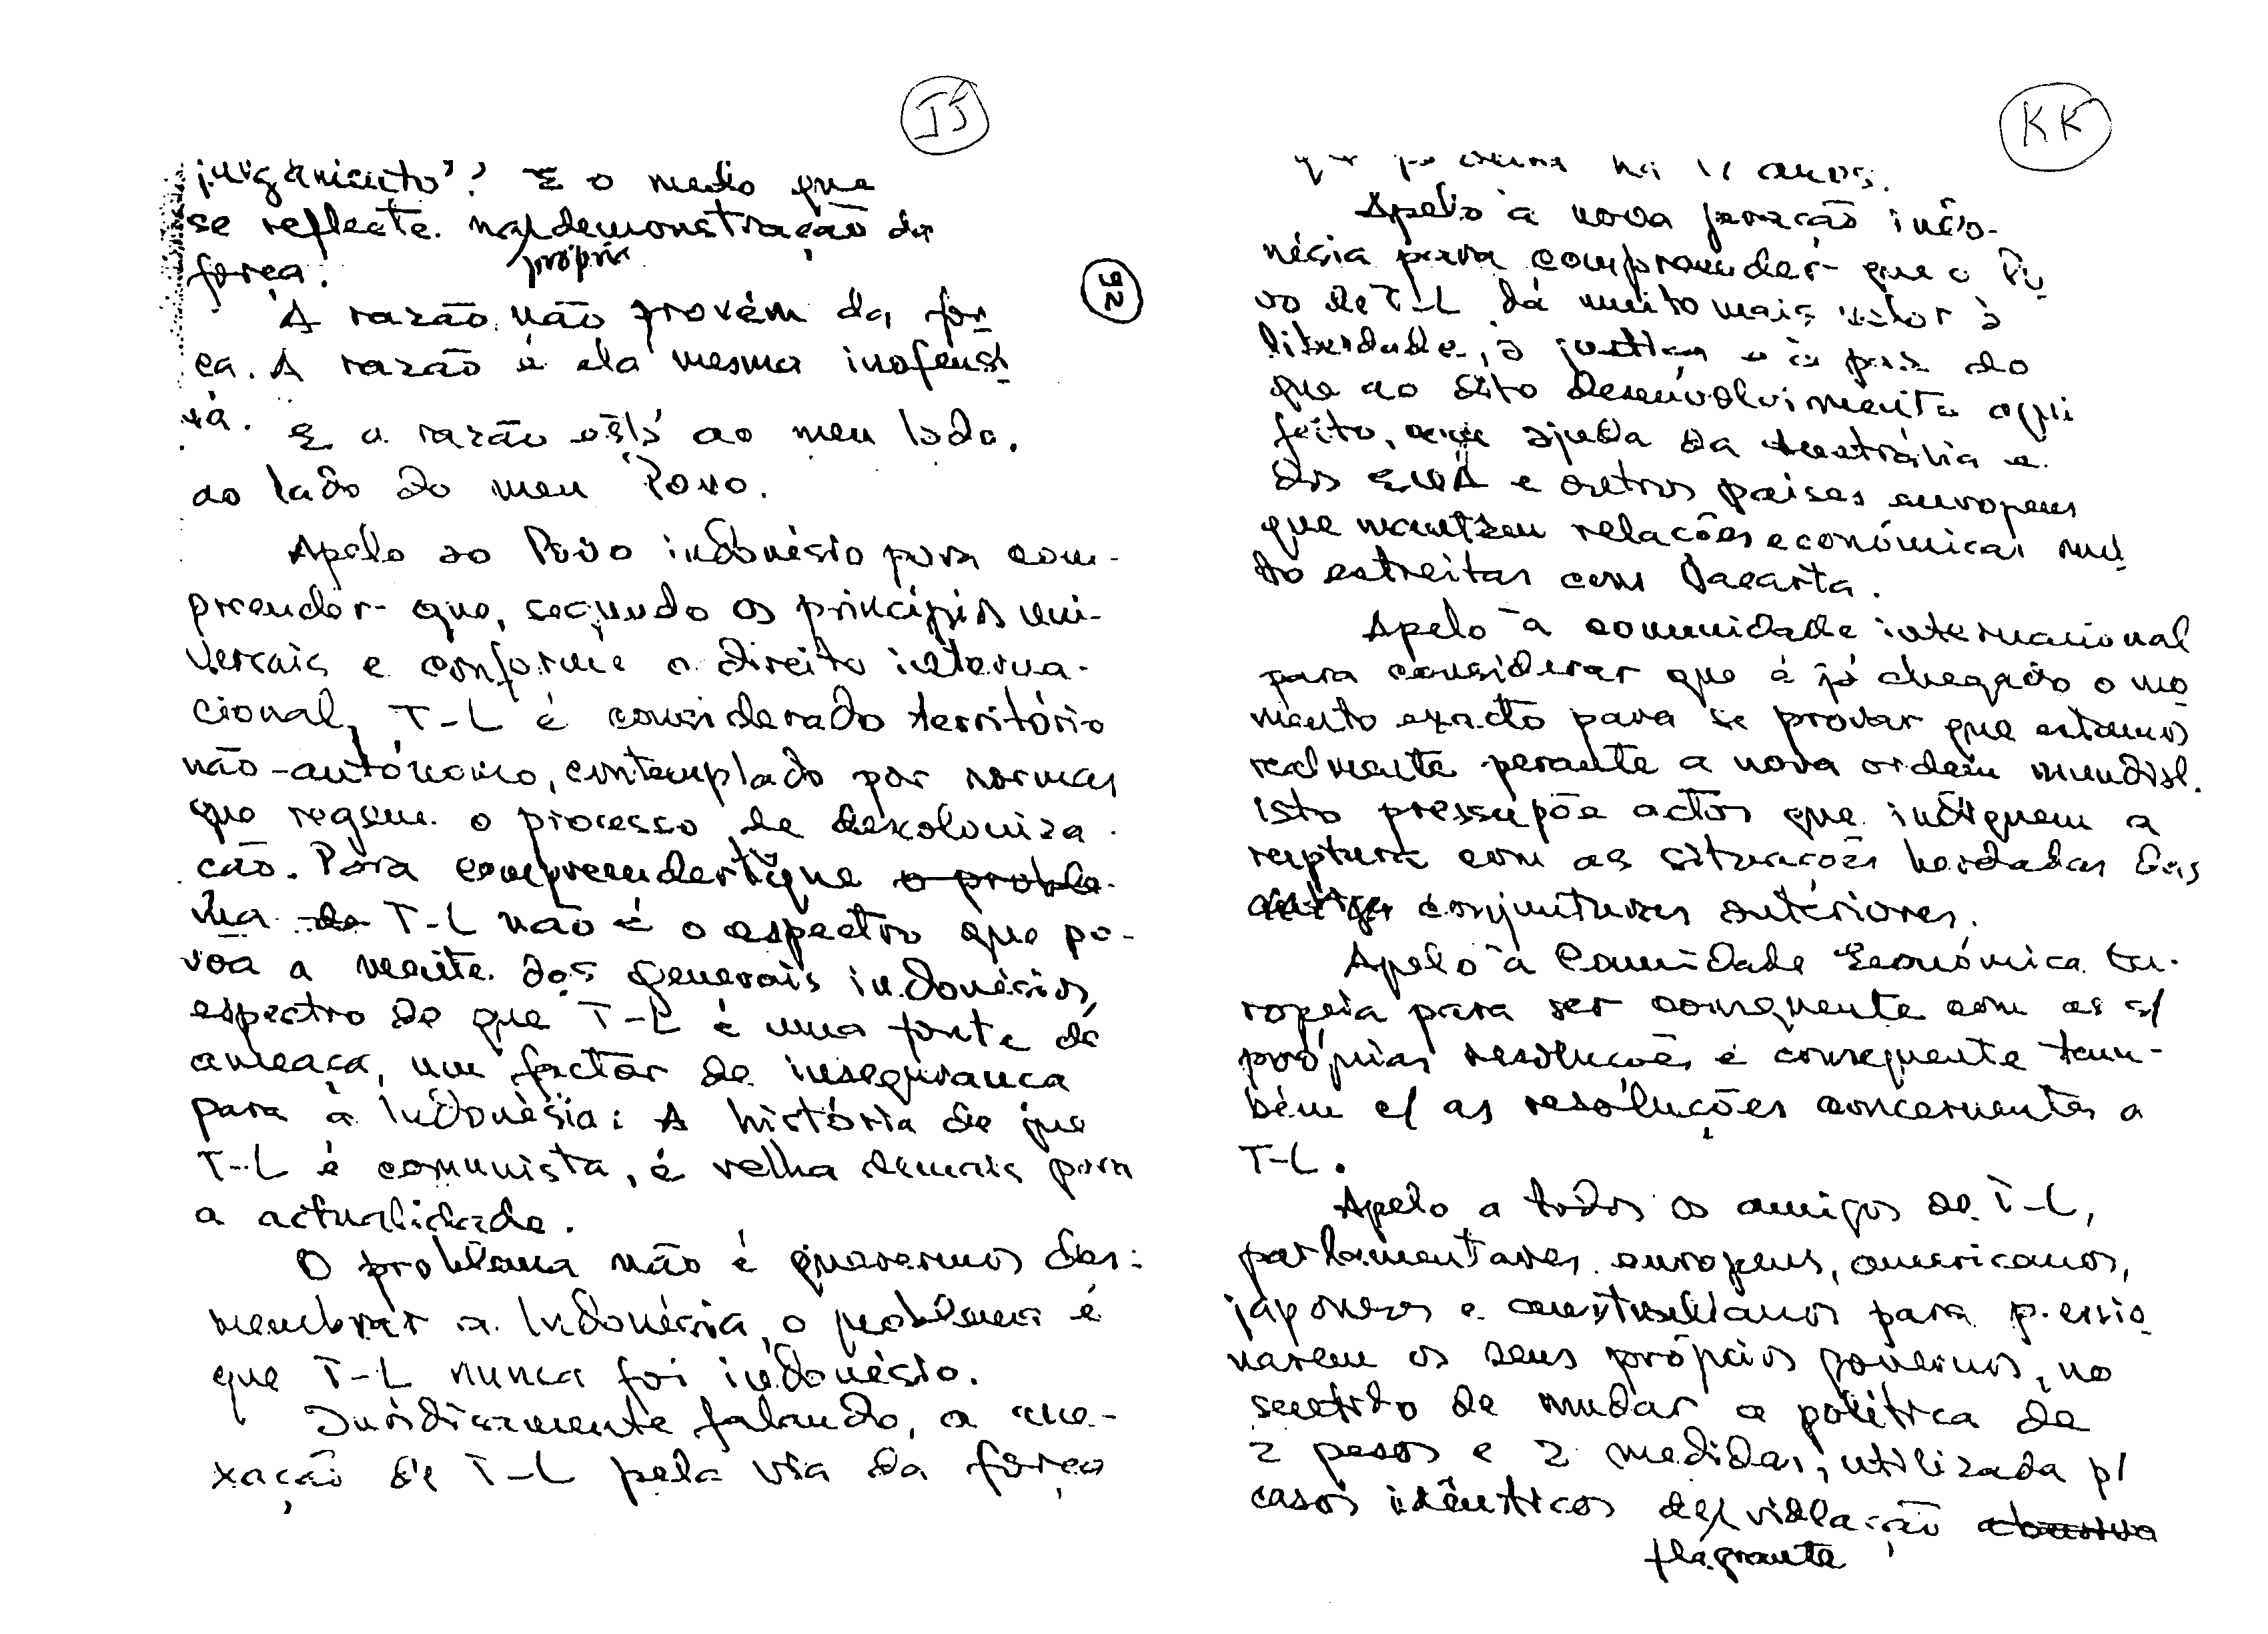 JJ
julgamento"? É o medo que
se reflecte na demonstração da
própria
força.
A razão não provém da for
ça. A razão é ela mesma inofensi
va.
E a razão está ao meu lado,
ao lado do meu Povo.
Apelo ao Povo indonésio para com-
preender que, segundo os princípios uni-
versais e conforme o direito interna-
cional, T-L é considerado território
não-autónomo, contemplado por normas
que regem o processo de descoloniza
ção. Para compreender que o proble-
ma de T-L não é o espectro que po-
voa a mente dos generais indonésios,
espectro de que T-L é uma fonte de
ameaça, um factor de insegurança
para a Indonésia. A história de que
T-L é comunista, é velha demais para
a actualidade.
O problema não é querermos des-
membrar a Indonésia, o problema é
que T-L nunca foi indonésio.
Juridicamente falando, a ane-
xação de T-L pela via da força
92
KK
há anos.
Apelo à nova geração indo-
nésia para compreender que o Po
vo de T-L dá muito mais valor à
liberdade, à justiça e à paz do
que ao dito desenvolvimento aqui
feito, ajuda da Austrália e
dos EUA e outros países europeus
que mantêm relações económicas mui
to estreitas com Jacarta.
Apelo à comunidade internacional
para considerar que é já chegado o mo
mento exacto para se provar que estamos
realmente perante a nova ordem mundial.
Isto pressupõe actos que indiquem a
ruptura com as situações herdadas das
conjunturas anteriores.
Apelo à Comunidade Económica Eu-
ropeia para ser consequente com as s/
próprias resoluções e consequente tam-
bém c/ as resoluções concernentes a
T-L.
Apelo a todos os amigos de T-L,
parlamentares europeus, americanos,
japoneses e australianos para pressio
narem os seus próprios governos, no
sentido de mudar a política de
2 pesos e 2 medidas, utilizada p/
casos idênticos de violação
flagrante